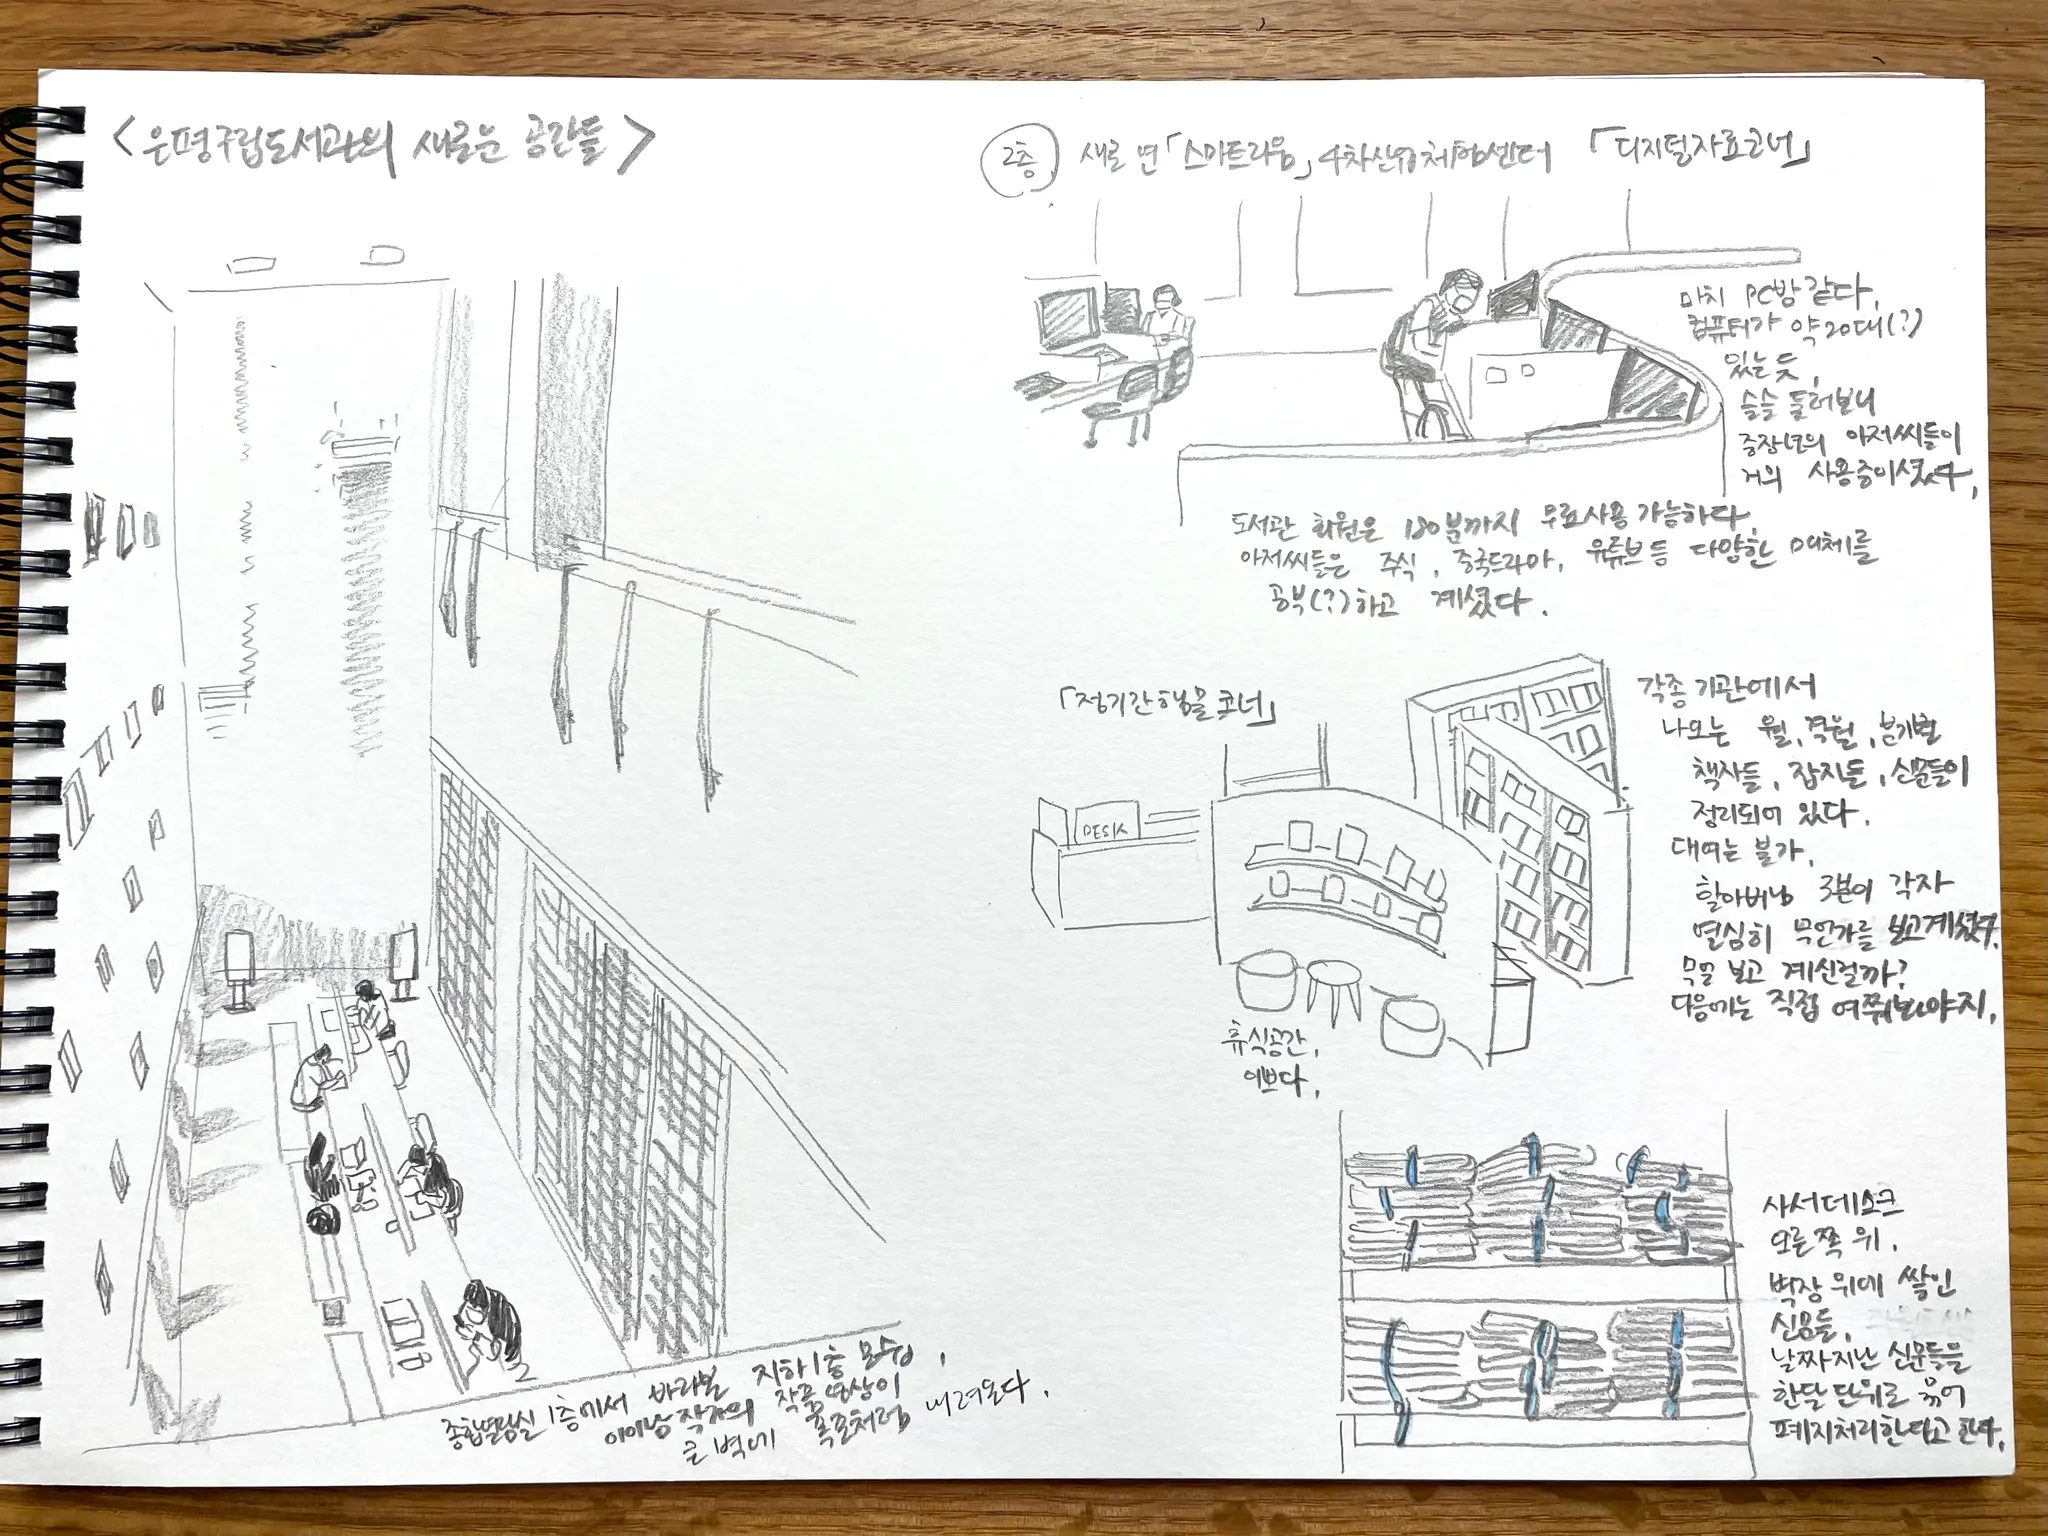 <은평구립도서관의 새로운 공간들>
종합열람실 1층에서 바라본 지하1층 모습,
이이남 작가의 작품영상이
큰 벽에 폭포처럼 내려온다.
2층
새로 연 「스마트라운」 4차산업체험센터 「디지털자료코너」
마치 PC방 같다.
컴퓨터가 약 20대(?)
있는 듯.
슬슬 둘러보니
중장년의 아저씨들이
거의 사용중이셨다.
도서관 회원은 180분까지 무료사용 가능하다.
아저씨들은 주식, 중국드라마, 유튜브 등 다양한 매체를
공부(?)하고 계셨다.
「정기간행물 코너」
DESK
휴식공간,
이쁘다.
각종 기관에서
나오는 월, 격월, 분기별
책자들, 잡지들, 신문들이
정리되어 있다.
대여는 불가.
할아버님 3분이 각자
열심히 무언가를 보고계셨다.
무얼 보고 계신걸까?
다음에는 직접 여쭤봐야지.
사서데스크
오른쪽 위.
벽장 위에 쌓인
신문들.
날짜지난 신문들을
한달 단위로 묶어
폐지처리한다고 한다.